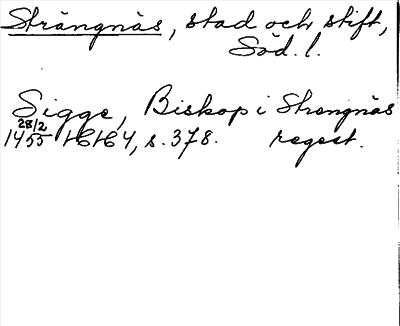 Strängnäs, stad och stift,
Söd. l.
Sigge, Biskop i Strengnäs
28/2
1455 HH 4, s. 378. regest.